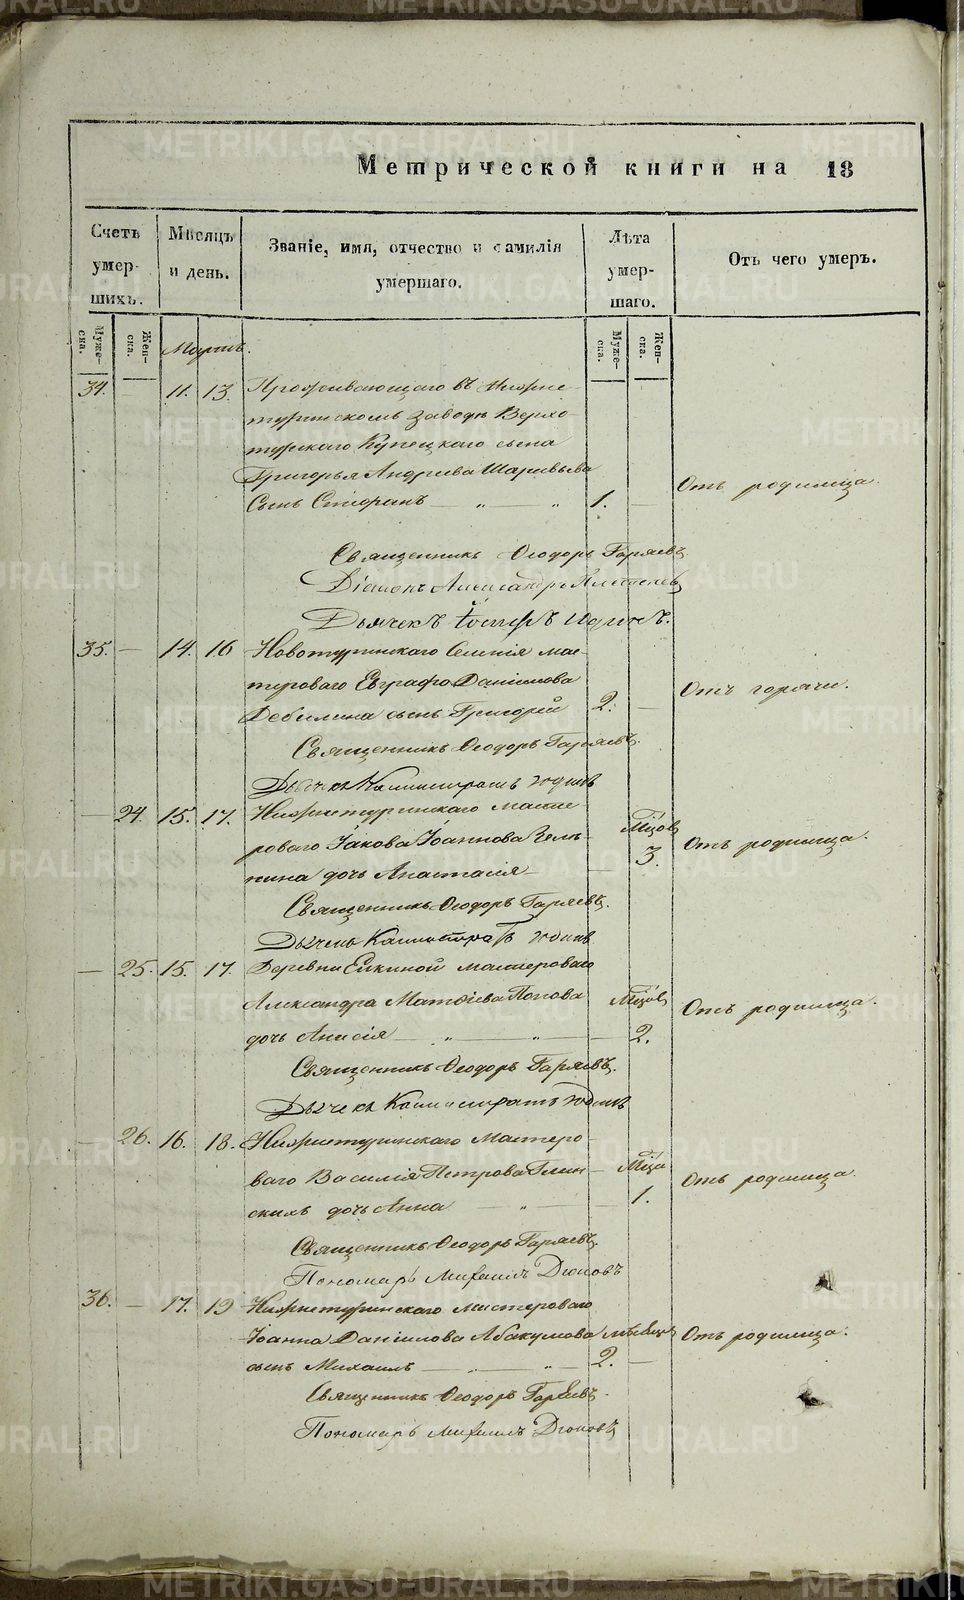 Метрической книги на 18
Счетъ умер-шихъ.
Мѣсяцъ и день.
Званіе, имя, отчество и фамилія умершаго.
Лѣта умер-шаго.
Отъ чего умеръ.
Муже-ска. Жен-ска. Муже-ска. Жен-ска.
Мартъ.
34. — 11. 13. Проживающаго въ Нижне-
туринскомъ заводѣ Верхо-
турскаго Купецкаго сына
Григорья Андреева
Сынъ Стефанъ — „ — „ 1. — Отъ родимца.
Священникъ Ѳеодоръ Гаряевъ
Діаконъ Александръ
Дьячекъ
35. — 14. 16 Новотуринскаго Селенія мас-
тероваго Евграфа Данилова
сынъ Григорій 2. — Отъ горячи.
Священникъ Ѳеодоръ Гаряевъ.
Дьячекъ
— 24. 15. 17. Нижнетуринскаго масте
роваго Іакова Іоаннова
дочь Анастасія — Мѣцовъ 3. Отъ родимца.
Священникъ Ѳеодоръ Гаряевъ.
Дьячекъ
— 25. 15. 17. Деревни Елкиной мастероваго
Александра Матѳіева Попова
дочь Анисія — „ — „ — Мѣцовъ 2. Отъ родимца.
Священникъ Ѳеодоръ Гаряевъ.
Дьячекъ
— 26. 16. 18. Нижнетуринскаго Мастеро-
ваго Василія Петрова Глин-
скихъ дочь Анна — „ — Мѣца 1. Отъ родимца.
Священникъ Ѳеодоръ Гаряевъ.
Пономарь Михаилъ Дюковъ
36. — 17. 19 Нижнетуринскаго мастероваго
Іоанна Данилова Абакумова
сынъ Михаилъ — „ — „ — 2. — Отъ родимца.
Священникъ Ѳеодоръ Гаряевъ.
Пономарь Михаилъ Дюковъ
METRIKI.GASO-URAL.RU